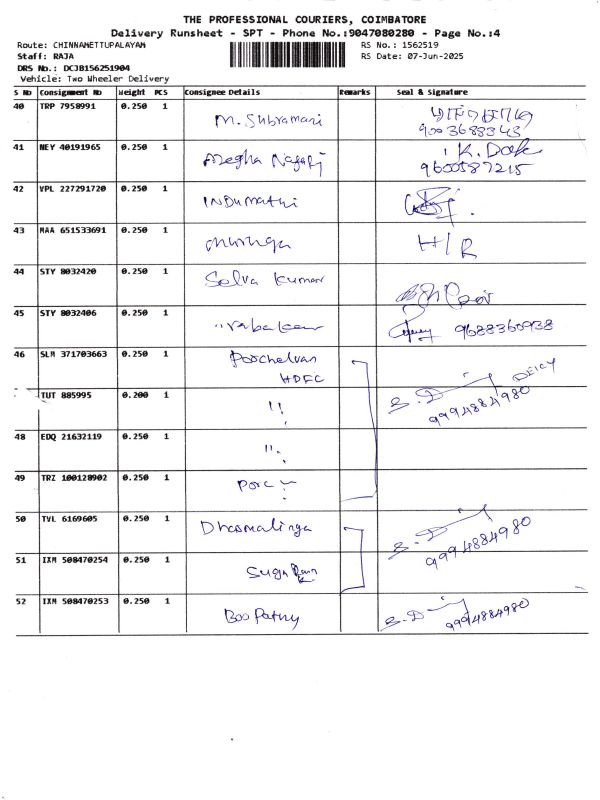 THE PROFESSIONAL COURIERS, COIMBATORE
Delivery Runsheet - SPT - Phone No.:9047080280 - Page No.:4
Route: CHINNAMETTUPALAYAM RS No.: 1562519
Staff: RAJA RS Date: 07-Jun-2025
DRS No.: DCJB156251904
Vehicle: Two Wheeler Delivery
S No Consignment No Weight PCS Consignee Details Remarks Seal & Signature
40 TRP 7958991 0.250 1 M. Subramani
9003688343
41 NEY 40191965 0.250 1 Megha Nagarj
9600587215
42 VPL 227291720 0.250 1 Indumathi
43 MAA 651533691 0.250 1 H/R
44 STY 8032420 0.250 1 Selva Kumar
45 STY 8032406 0.250 1 9688360938
46 SLM 371703663 0.250 1 Porchelvan
HDFC
TUT 885995 0.200 1 ,, B. D 9994884980
48 EDQ 21632119 0.250 1 ,,
49 TRZ 100128902 0.250 1 Porc
50 TVL 6169605 0.250 1 Dharmalinga B. D
51 IXM 508470254 0.250 1 Suga 9994884980
52 IXM 508470253 0.250 1 Boopathy B. D 9994884980